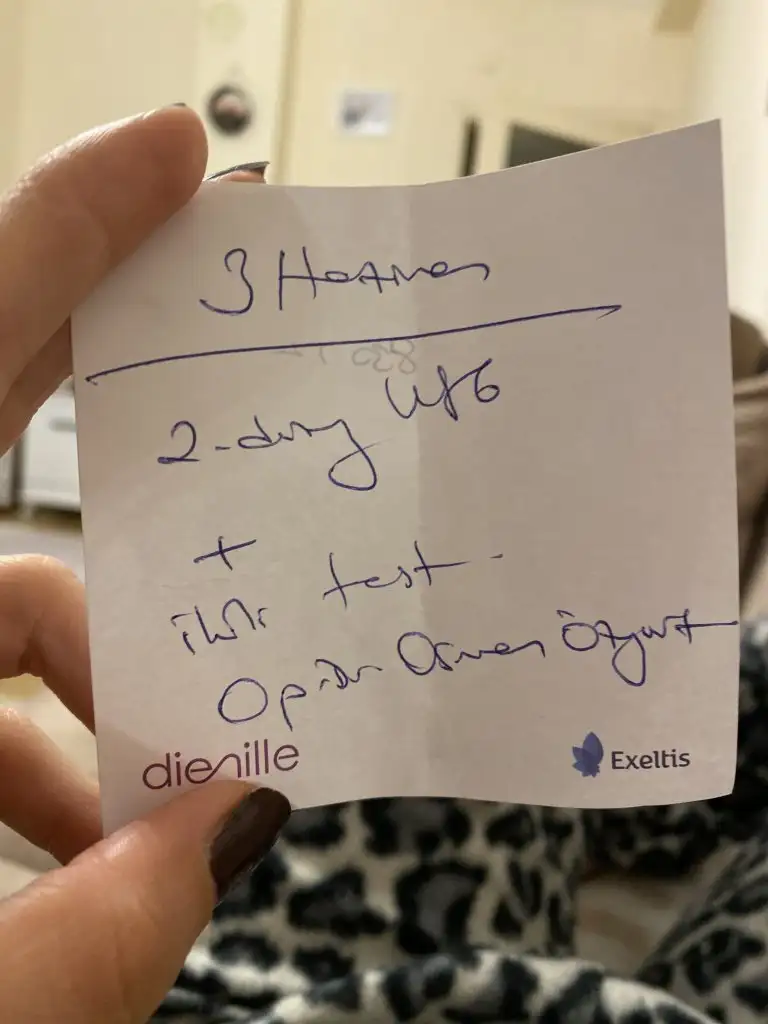 3
2-düzey USG
+
ikili test.
Op. Dr. Osman Özyurt
dienille
Exeltis